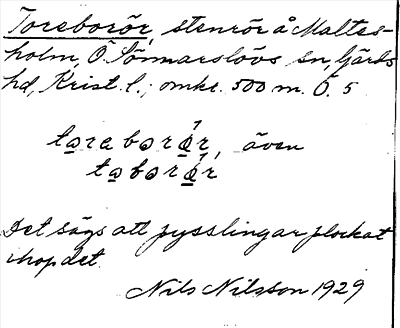 Toreborör, stenrör å Maltes-
holm, Ö. Sönnarslövs sn, Gärds
hd, Krist. l.; omkr. 500 m. Ö. 5
tarabarör, även
tabarör
Det sägs att pysslingar plockat
ihop det.
Nils Nilsson 1929